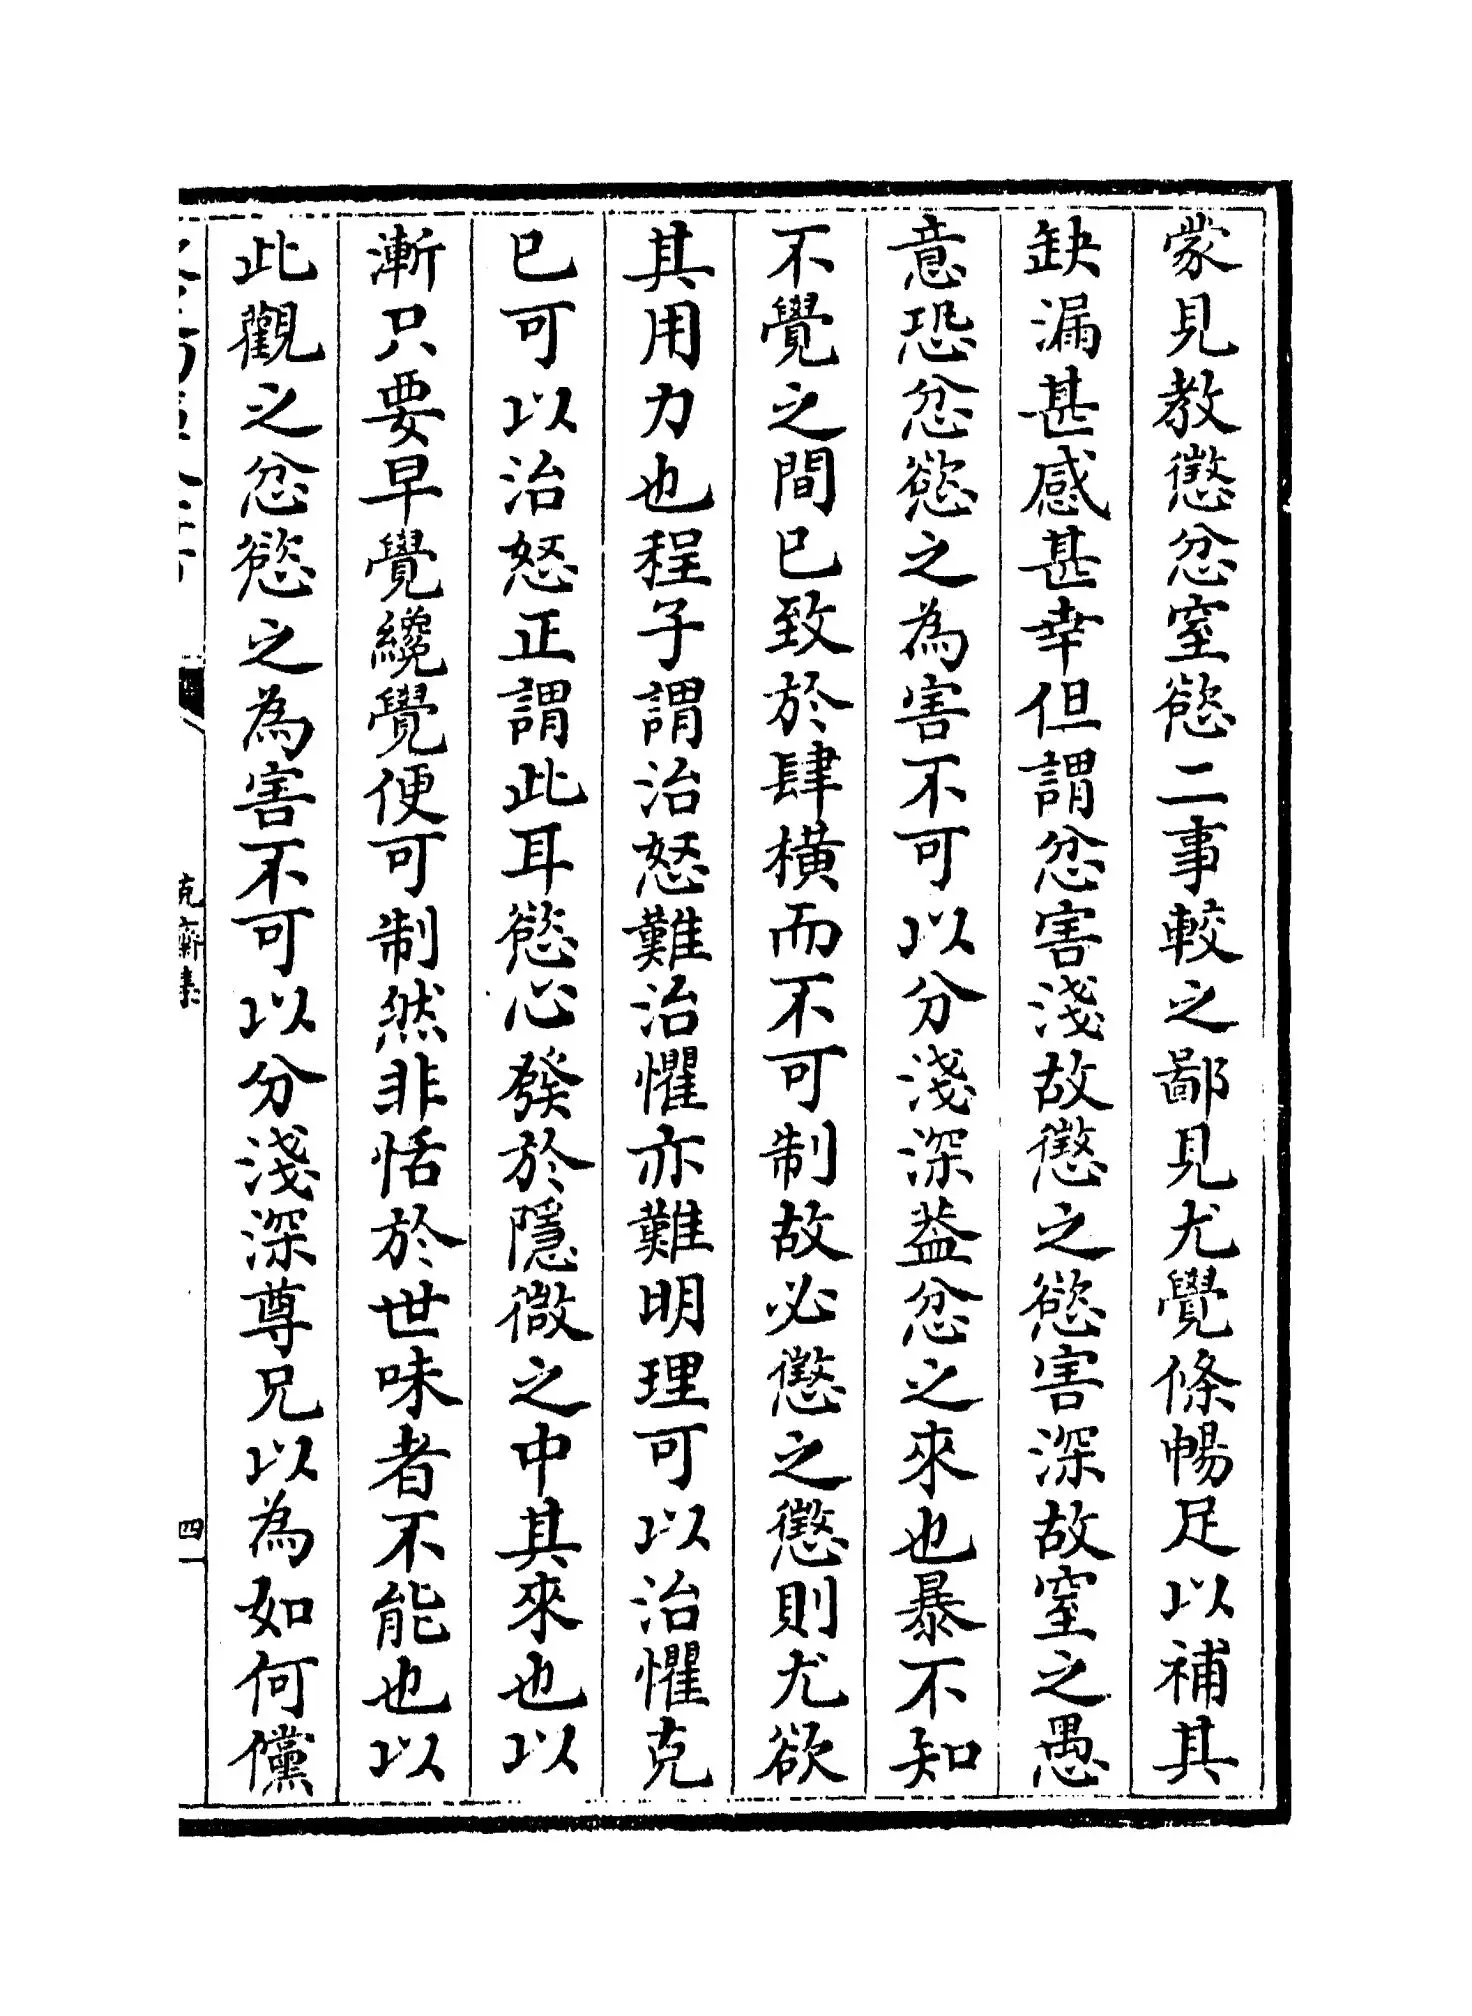 蒙見教懲忿窒慾二事較之鄙見尤覺條暢足以補其
缺漏甚感甚幸但謂忿害淺故懲之慾害深故窒之愚
意恐忿慾之為害不可以分淺深葢忿之來也暴不知
不覺之間已致於肆橫而不可制故必懲之懲則尤欲
其用力也程子謂治怒難治懼亦難明理可以治懼克
已可以治怒正謂此耳慾心發於隱微之中其來也以
漸只要早覺纔覺便可制然非恬於世味者不能也以
此觀之忿慾之為害不可以分淺深尊兄以為如何儻
克齋集
四